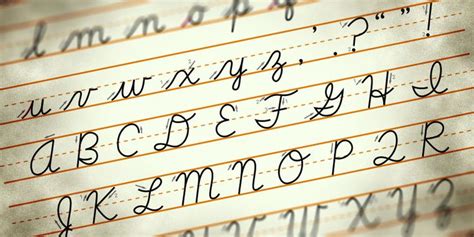 l m n o p q
u v w x y z , ' . ? “ ” !
A B C D E F G H I
J K L M N O P Q R
U V W X Y Z